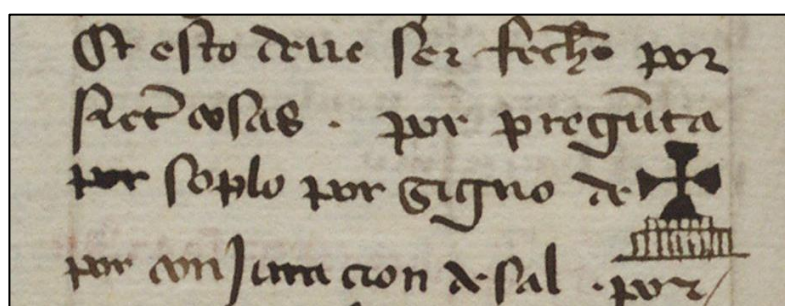 Et esto deue ser fecho por
siete cosas . por pregũta
por soplo por signo de ✠
por conjuracion de sal . por